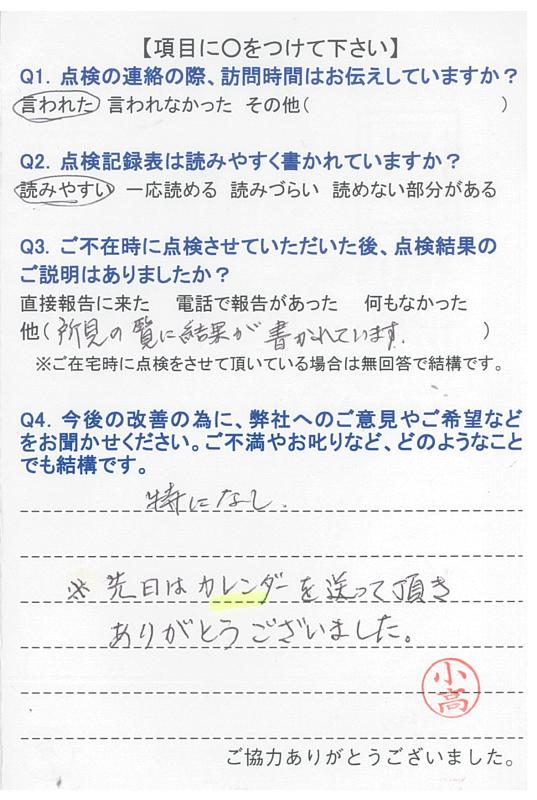 【項目に〇をつけて下さい】
Q1. 点検の連絡の際、訪問時間はお伝えしていますか?
言われた 言われなかった その他( )
Q2. 点検記録表は読みやすく書かれていますか?
読みやすい 一応読める 読みづらい 読めない部分がある
Q3. ご不在時に点検させていただいた後、点検結果の
ご説明はありましたか?
直接報告に来た 電話で報告があった 何もなかった
他(所見の覧に結果が書かれています. )
※ご在宅時に点検をさせて頂いている場合は無回答で結構です。
Q4. 今後の改善の為に、弊社へのご意見やご希望など
をお聞かせください。ご不満やお叱りなど、どのようなこと
でも結構です。
特になし.
※ 先日はカレンダーを送って頂き
ありがとうございました。
小高
ご協力ありがとうございました。